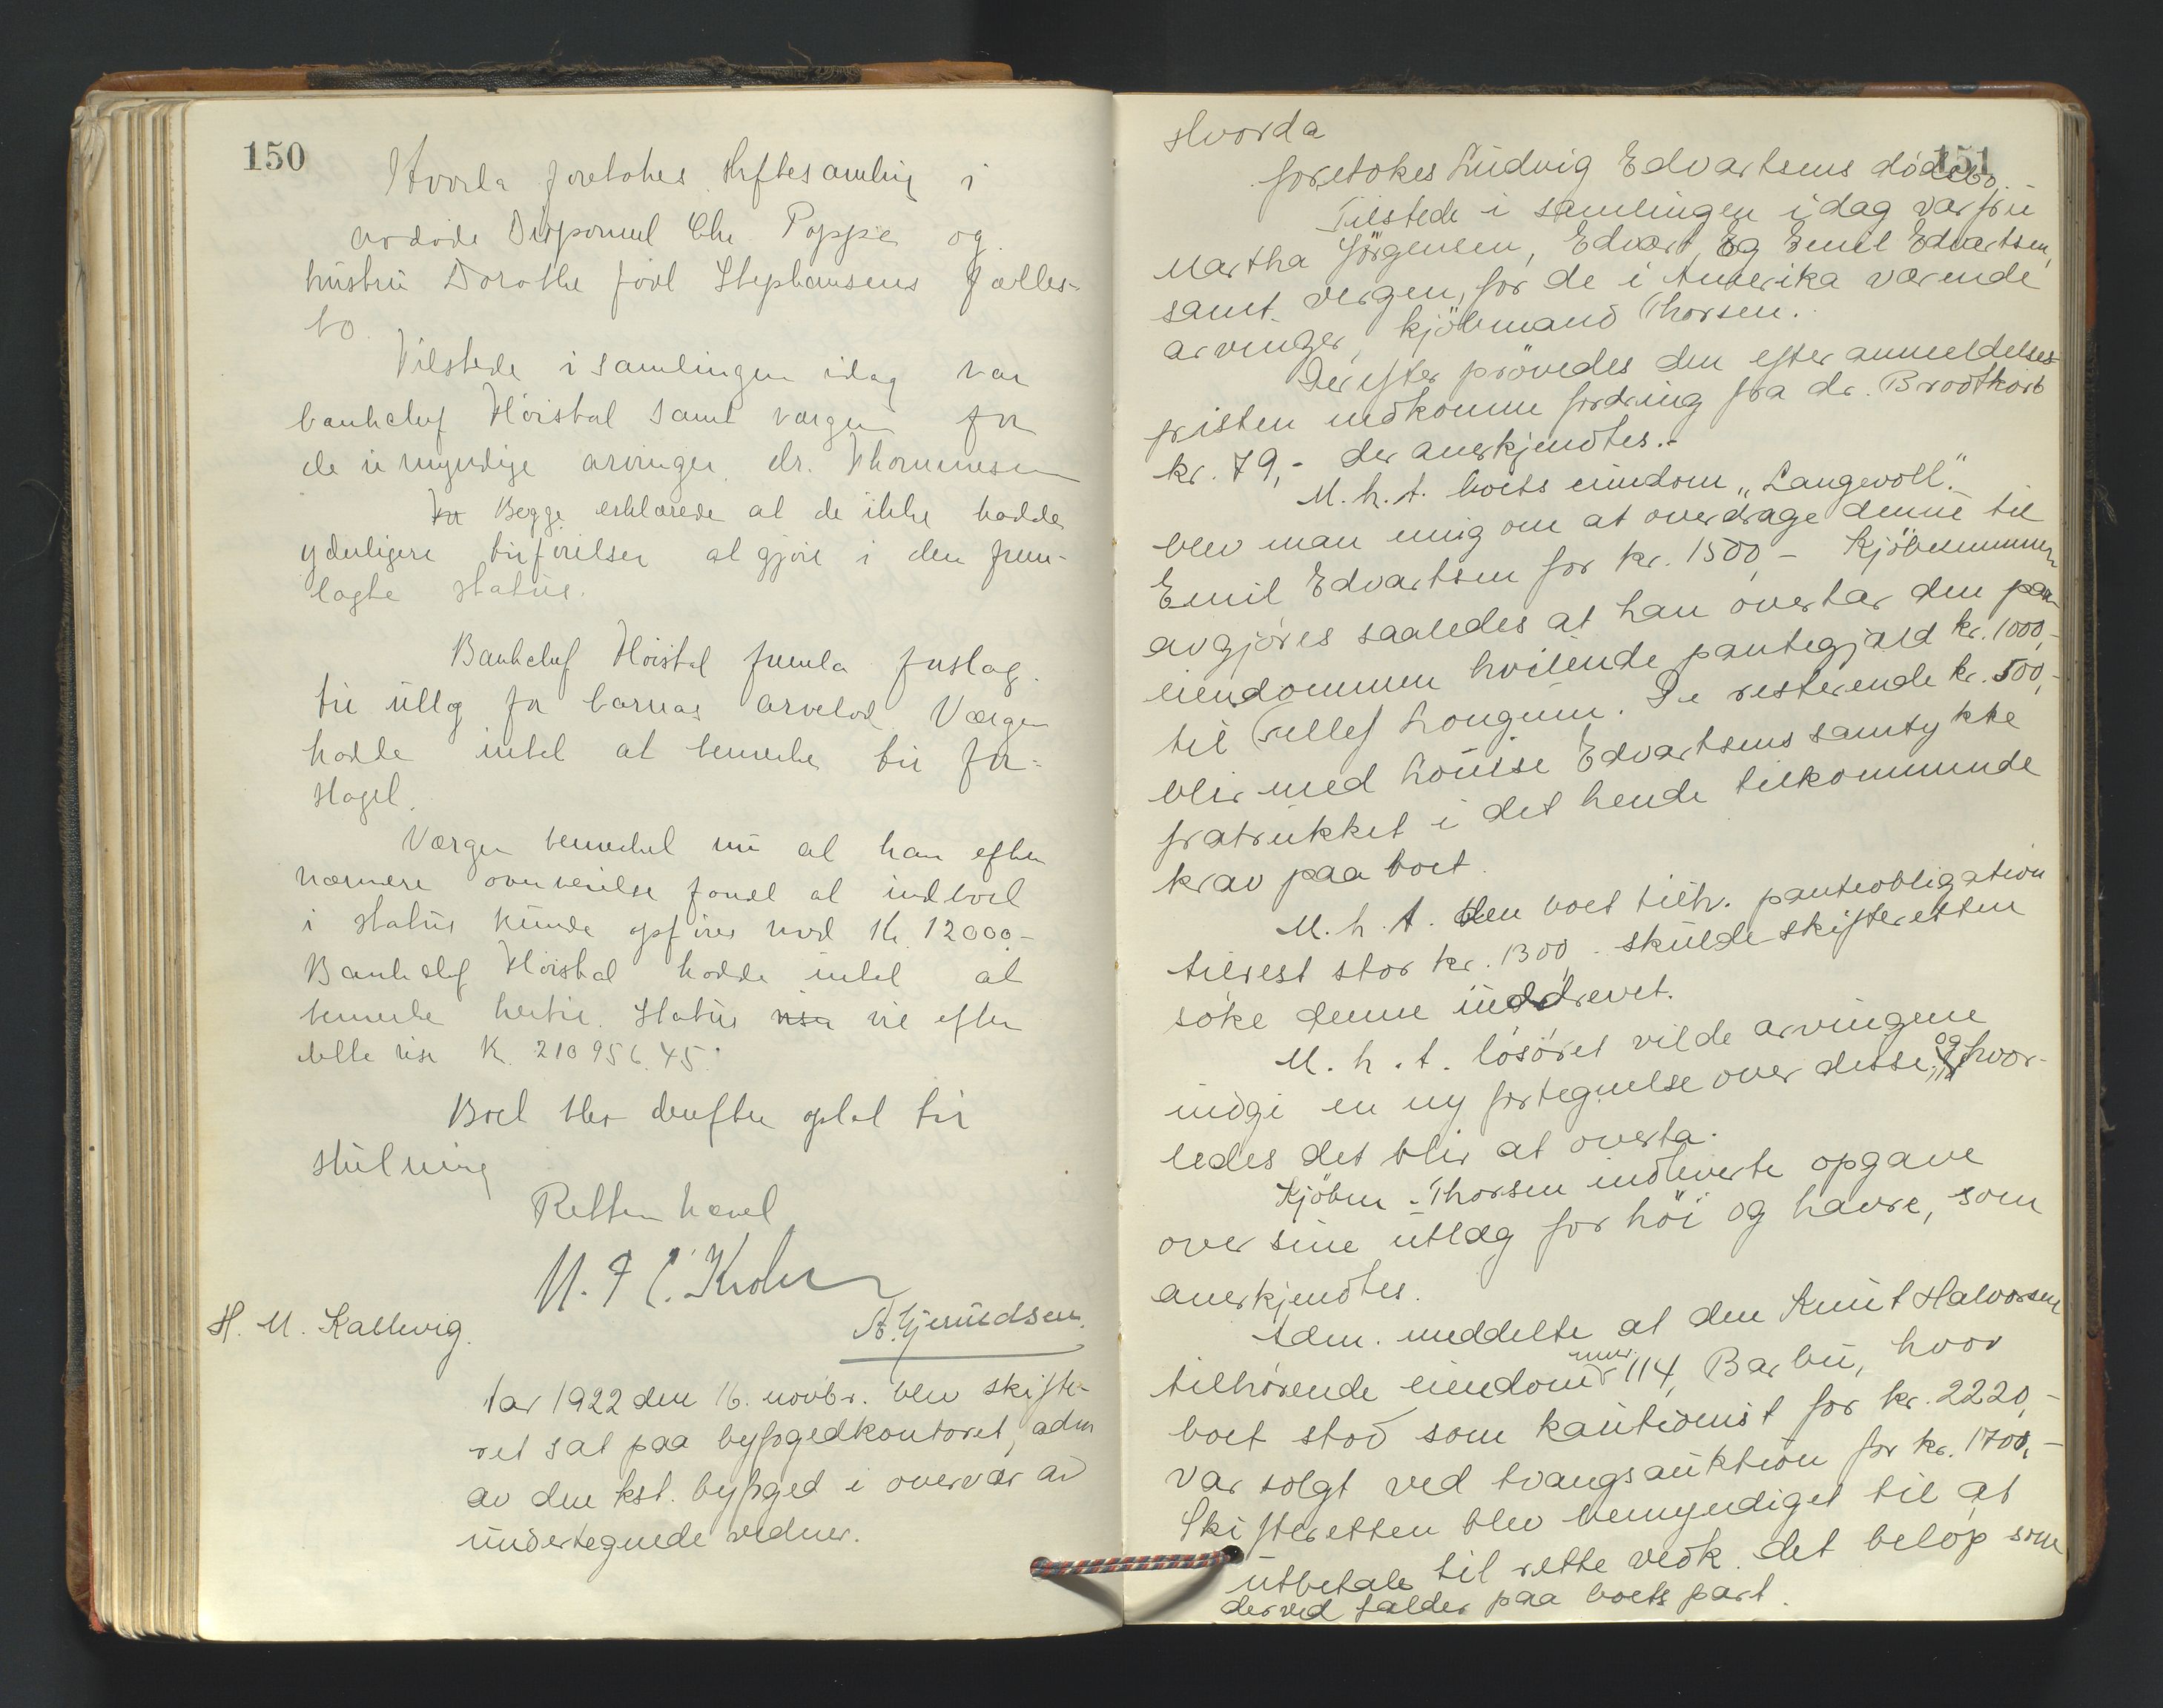 150
Hvorda foretokes skiftesamling i
avdøde Disponent Chr. Poppe og
hustru Dorothe født Stephansens fælles-
bo.
Tilstede i samlingen idag var
bankchef Høistad samt vergen for
de umyndige arvinger dr. Thommesen
Begge erklærede at de ikke hadde
yderligere tilføielser at gjøre i den frem-
lagte status.
Bankchef Høistad fremla forslag
til utlæg for barnas arvelod. Værgen
hadde intet at bemerke til for-
slaget.
Værgen bemerket nu at han efter
nærmere overveielse fandt at indboet
i status kunde opføres med Kr. 12000.-
Bankchef Høistad hadde intet at
bemerke hertil. Status vil efter
dette vise Kr. 210956.45.
Boet blev derefter optat til
slutning
Retten hævet
N. F. C. Krohn
H. M. Kallevig.
A. Gjermundsen.
Aar 1922 den 16. novbr. blev skifte-
ret sat paa byfogedkontoret, adm
av den kst. byfoged i overvær av
undertegnede vidner.
151
Hvorda
foretokes Ludvig Edvartsens dødsbo.
Tilstede i samlingen idag var fru
Martha Jörgensen, Edvart og Emil Edvartsen,
samt vergen for de i Amerika værende
arvinger, kjöbmand Thorsen.
Derefter prövedes den efter anmeldelses-
fristen indkomne fordring fra dr. Brodtkorb
kr. 79,- der anerkjendtes.-
M. h. t. boets eiendom „Langevoll"
blev man enig om at overdrage denne til
Emil Edvartsen for kr. 1500,- Kjöbesummen
avgjöres saaledes at han overtar den paa
eiendommen hvilende pantegjæld kr. 1000,-
til Tellef Longum. De resterende kr. 500,-
blir med Louise Edvartsens samtykke
fratrukket i det hende tilkommende
krav paa boet.
M. h. t. den boet tilh. panteobligation
tilrest stor kr. 1300,- skulde skifteretten
söke denne inddrevet.
M. h. t. lösöret vilde arvingene
indgi en ny fortegnelse over disse, og hvor-
ledes det blir at overta.
Kjöbm. Thorsen indleverte opgave
over sine utlæg for höi og havre, som
anerkjendtes.
Adm. meddelte at den Knut Halvorsen
tilhørende eiendom mnr. 114, Barbu, hvor
boet stod som kautionist for kr. 2220,-
var solgt ved tvangsauktion for kr. 1700,-
Skifteretten blev bemyndiget til at
utbetale til rette vedk. det belöp som
derved falder paa boets part.